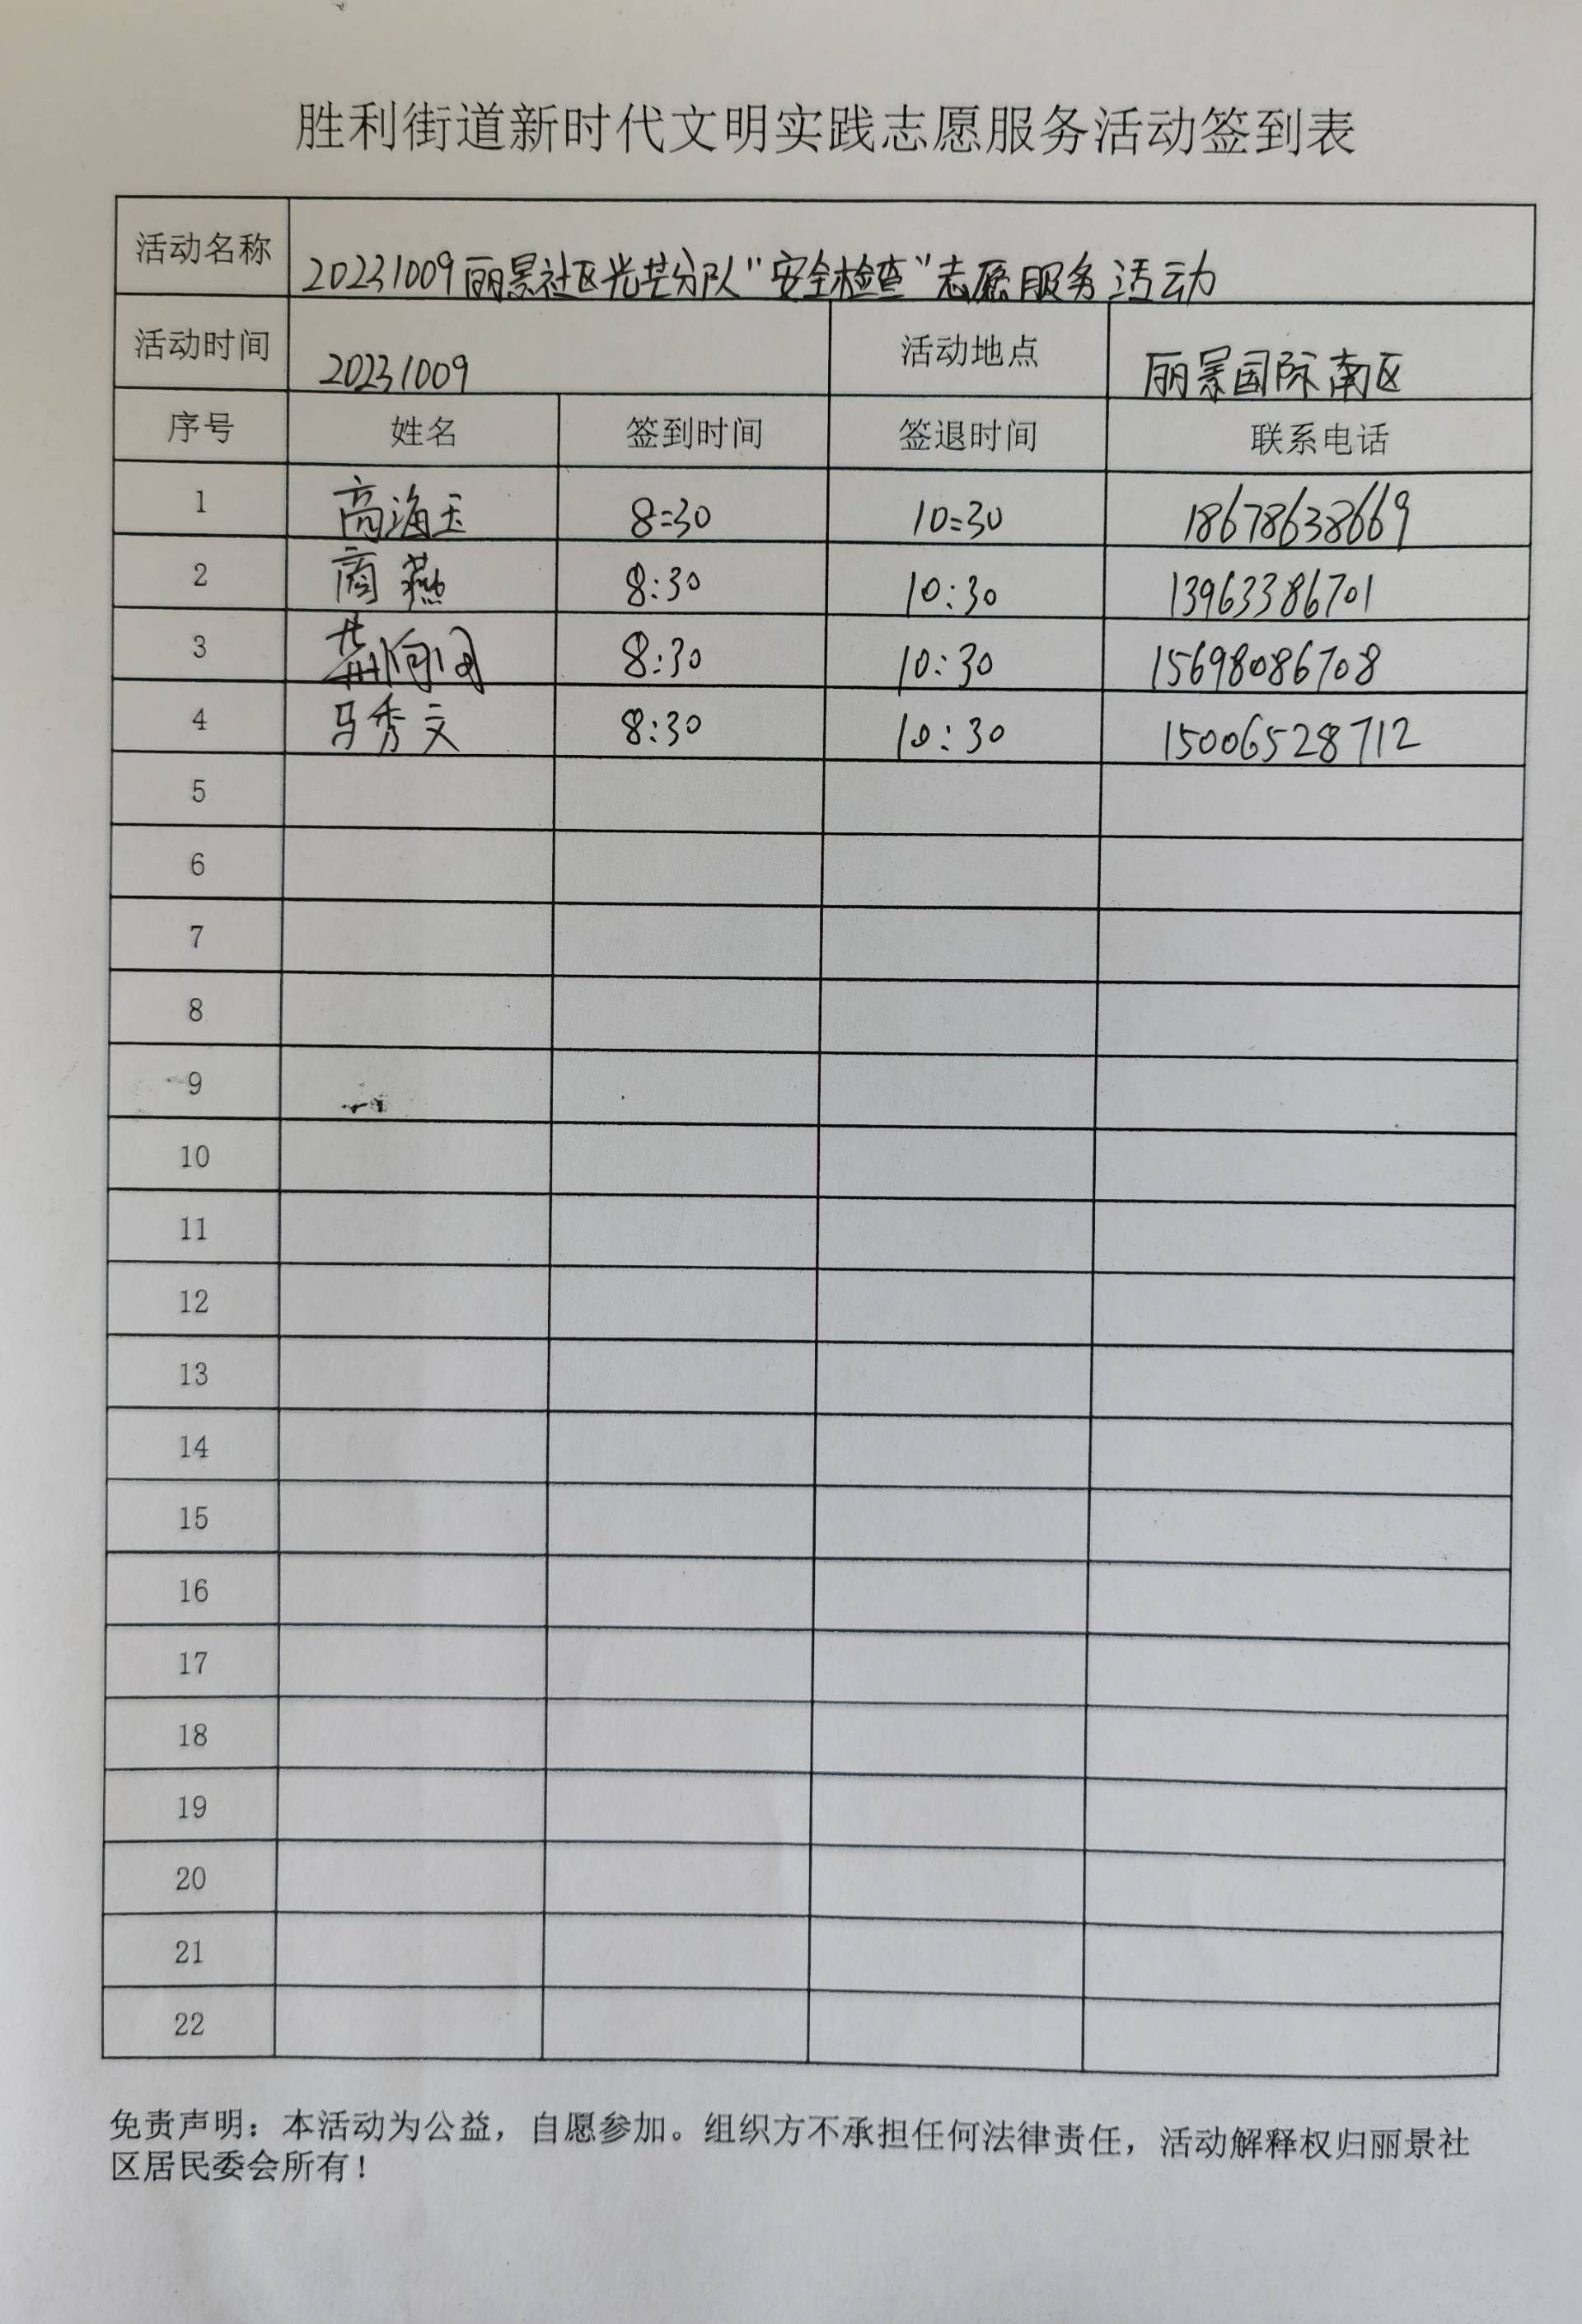 胜利街道新时代文明实践志愿服务活动签到表
活动名称 20231009丽景社区光芒分队"安全检查"志愿服务活动
活动时间 20231009 活动地点 丽景国际南区
序号 姓名 签到时间 签退时间 联系电话
1 高海玉 8:30 10:30 18678638669
2 商燕 8:30 10:30 13963386701
3 8:30 10:30 15698086708
4 马秀文 8:30 10:30 15006528712
5
6
7
8
9
10
11
12
13
14
15
16
17
18
19
20
21
22
免责声明：本活动为公益，自愿参加。组织方不承担任何法律责任，活动解释权归丽景社
区居民委会所有！